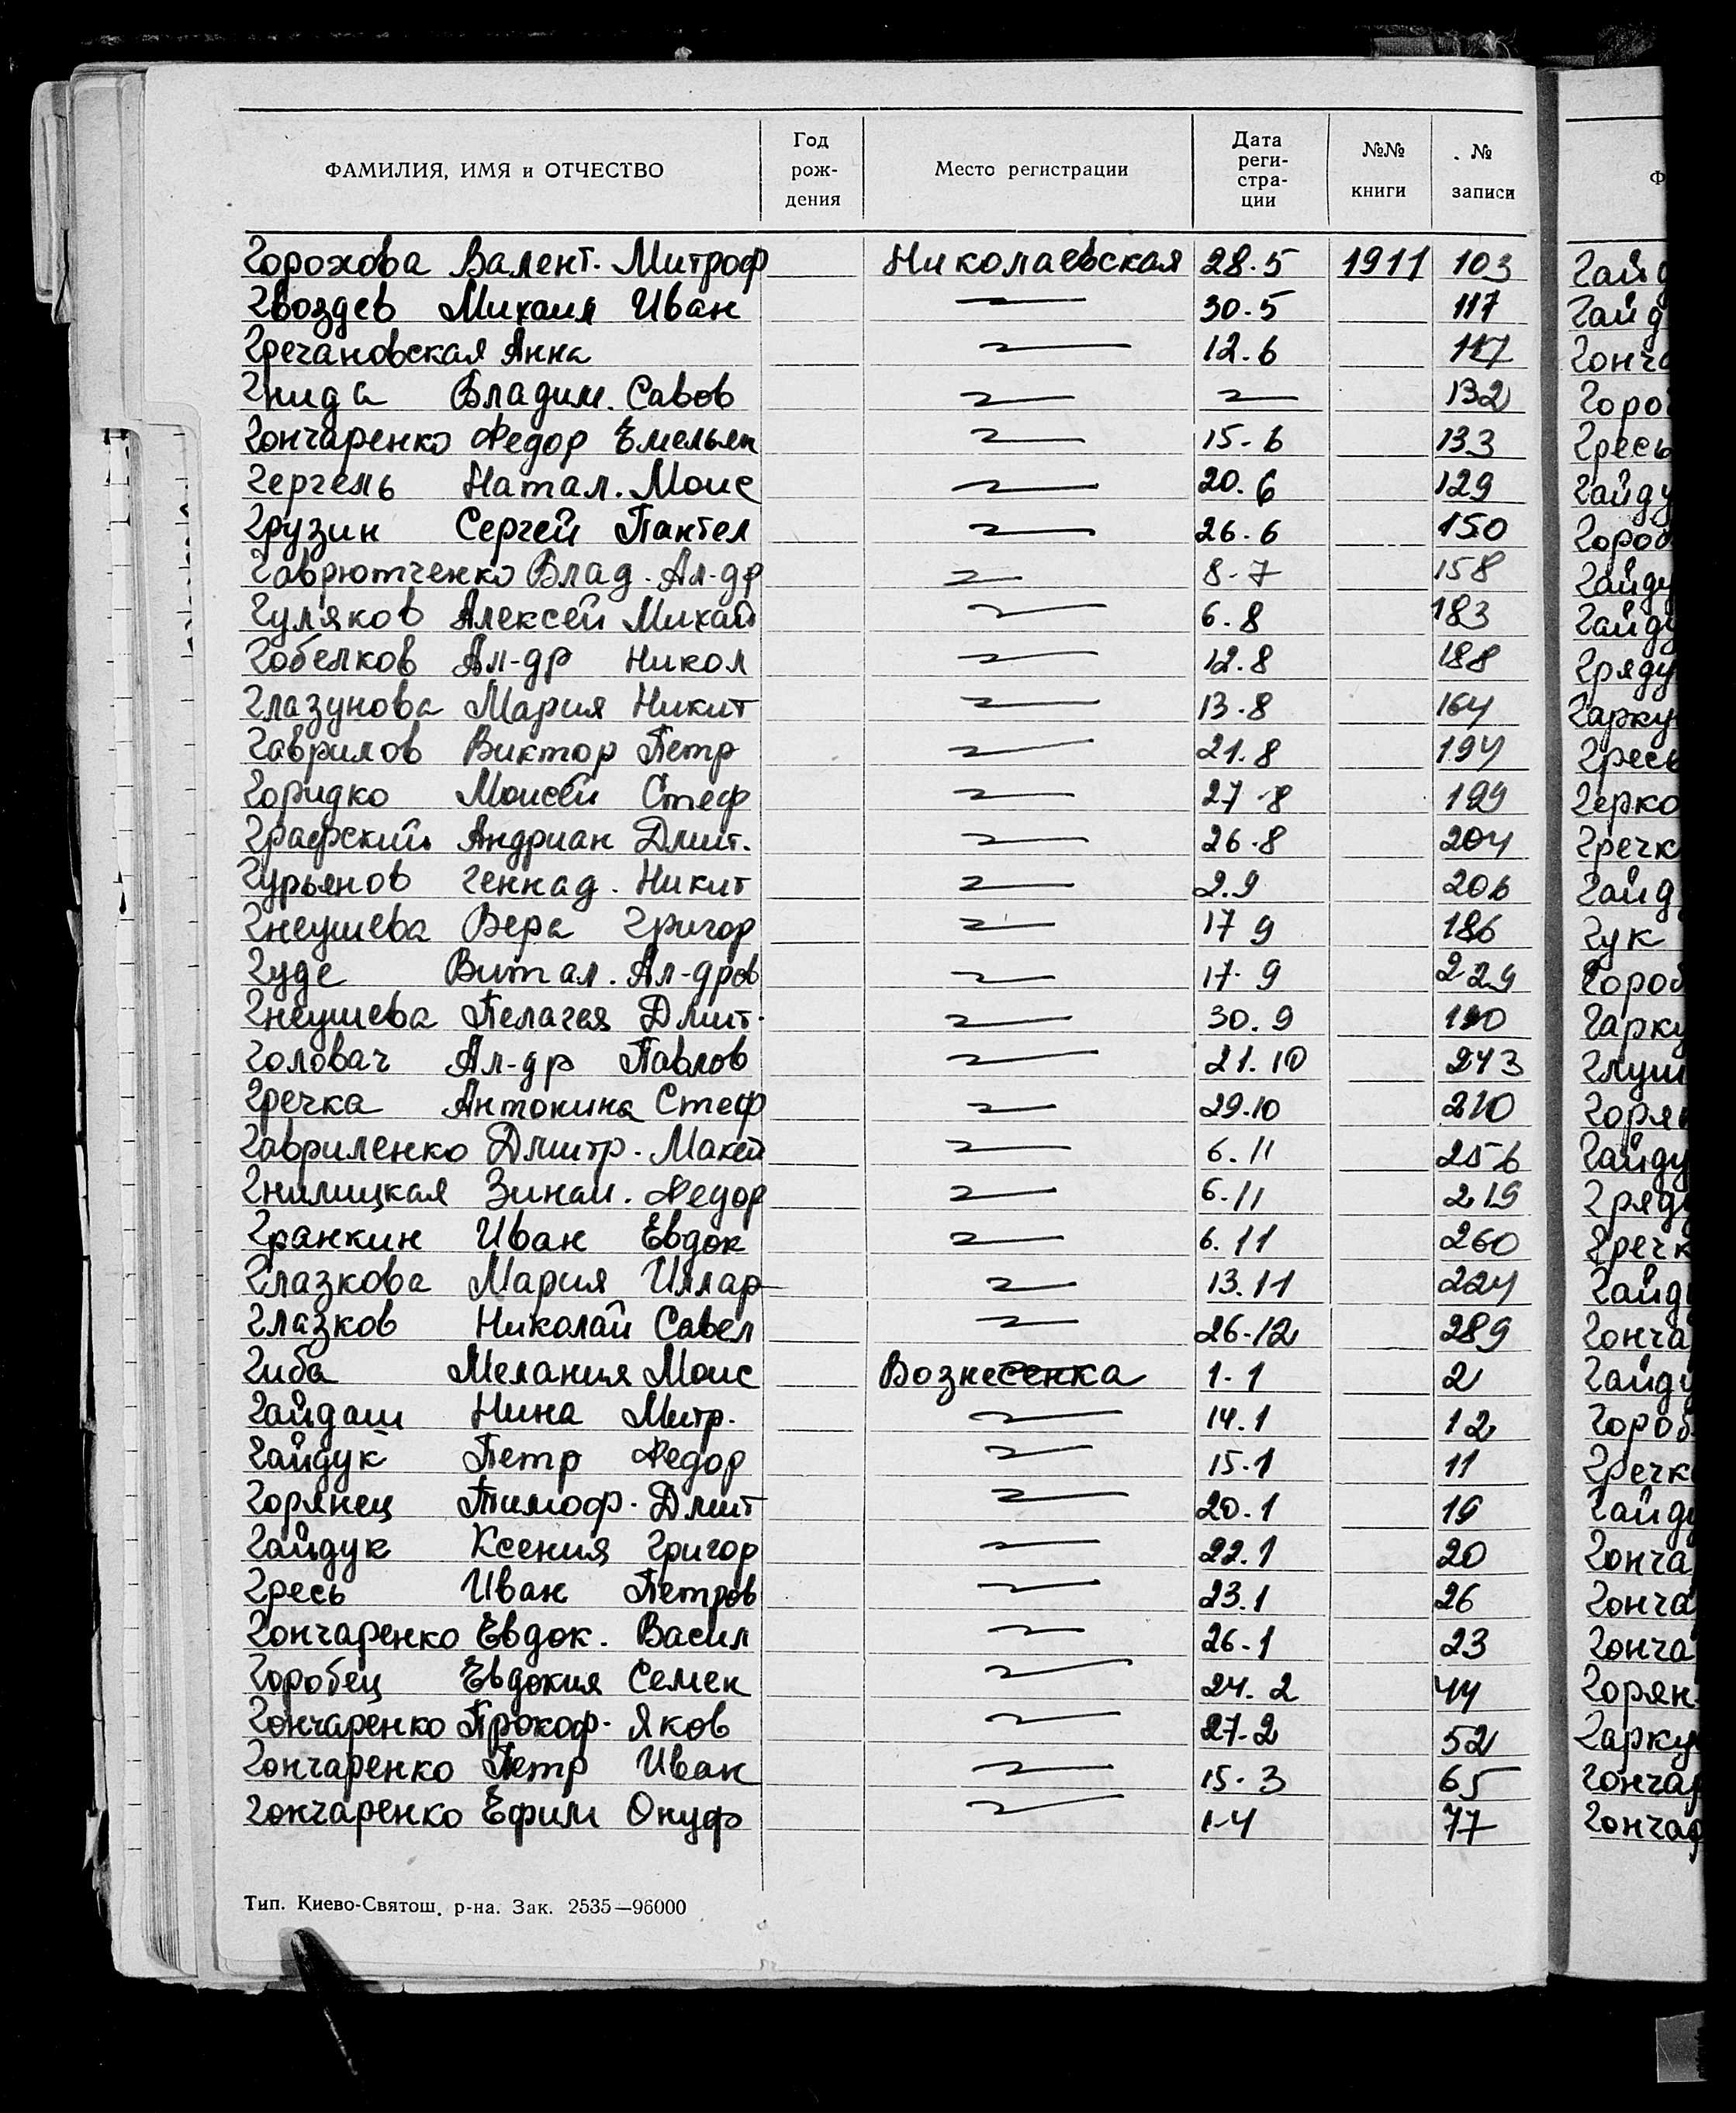 ФАМИЛИЯ, ИМЯ и ОТЧЕСТВО Год рождения Место регистрации Дата регистрации №№ книги № записи
Горохова Валент. Митроф Николаевская 28.5 1911 103
Гвоздев Михаил Иван 30.5 117
Гречановская Анна 12.6 117
Гнида Владим. Савов 132
Гончаренко Федор Емельян 15.6 133
Гергель Натал. Моис 20.6 129
Грузин Сергей Пантел 26.6 150
Гаврютченко Влад. Ал-др 8-7 158
Гуляков Алексей Михай 6.8 183
Гобелков Ал-др Никол 12.8 188
Глазунова Мария Никит 13.8 164
Гаврилов Виктор Петр 21.8 194
Горидко Моисей Стеф 27.8 199
Графский Андриан Дмит. 26.8 204
Гурьянов Геннад. Никит 2.9 206
Гнеушева Вера Григор 17 9 186
Гуде Витал. Ал-дров 17.9 229
Гнеушева Пелагея Дмит. 30.9 190
Головач Ал-др Павлов 21.10 243
Гречка Антонина Стеф 29.10 210
Гавриленко Дмитр. Макси 6.11 256
Гнилицкая Зинаи. Федор 6.11 219
Гранкин Иван Евдок 6.11 260
Глазкова Мария Иллар 13.11 224
Глазков Николай Савел 26-12 289
Гиба Мелания Моис Вознесенка 1-1 2
Гайдаш Нина Митр. 14.1 12
Гайдук Петр Федор 15.1 11
Горянец Тимоф. Дмит 20.1 19
Гайдук Ксения Григор 22.1 20
Гресь Иван Петров 23.1 26
Гончаренко Евдок. Васил 26-1 23
Горобец Евдокия Семен 24.2 44
Гончаренко Прокоф. Яков 27-2 52
Гончаренко Петр Иван 15.3 65
Гончаренко Ефим Онуф 1-4 77
Тип. Киево-Святош. р-на. Зак. 2535—96000